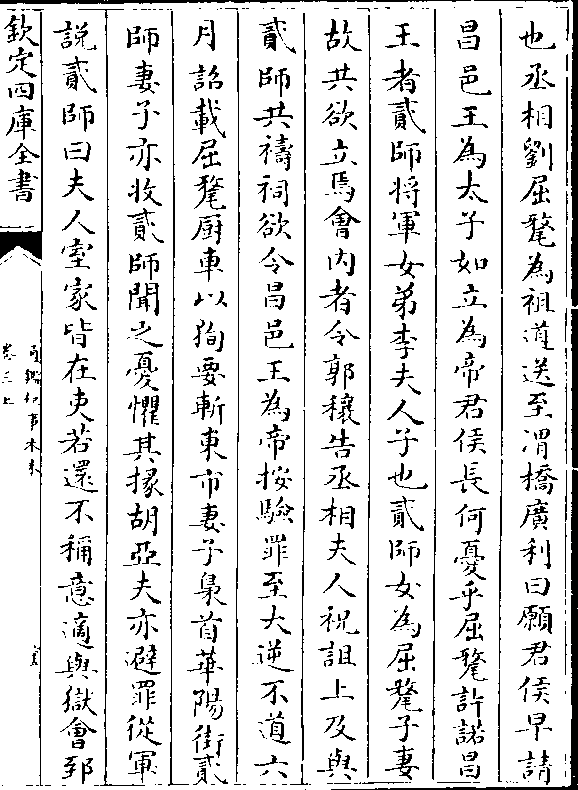 也丞相劉屈氂為祖道送至渭橋廣利曰願君侯早請
昌邑王為太子如立為帝君侯長何憂乎屈氂許諾昌
王者貳師将軍女弟李夫人子也貳師女為屈氂子妻
故共欲立焉會内者令郭穰告丞相夫人祝詛上及與
貳師共禱祠欲令昌邑王為帝按驗罪至大逆不道六
月詔載屈氂厨車以狥要斬東市妻子梟首華陽街貳
師妻子亦收貳師聞之憂懼其掾胡亞夫亦避罪從軍
説貳師曰夫人室家皆在吏若還不稱意適與獄會郅
欽定四庫全書
通鑑紀事本末
卷三上